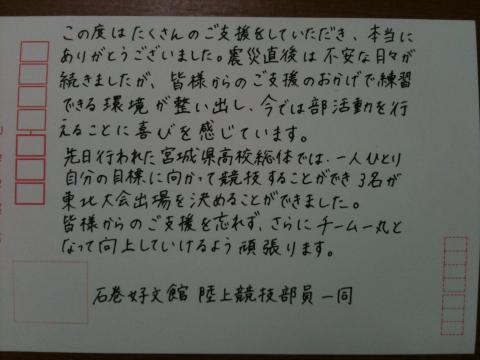 この度はたくさんのご支援をしていただき、本当に
ありがとうございました。震災直後は不安な日々が
続きましたが、皆様からのご支援のおかげで練習
できる環境が整い出し、今では部活動を行
えることに喜びを感じています。
先日行われた宮城県高校総体では、一人ひとり
自分の目標に向かって競技することができ3名が
東北大会出場を決めることができました。
皆様からのご支援を忘れず、さらにチーム一丸と
なって向上していけるよう頑張ります。
石巻好文館 陸上競技部員一同